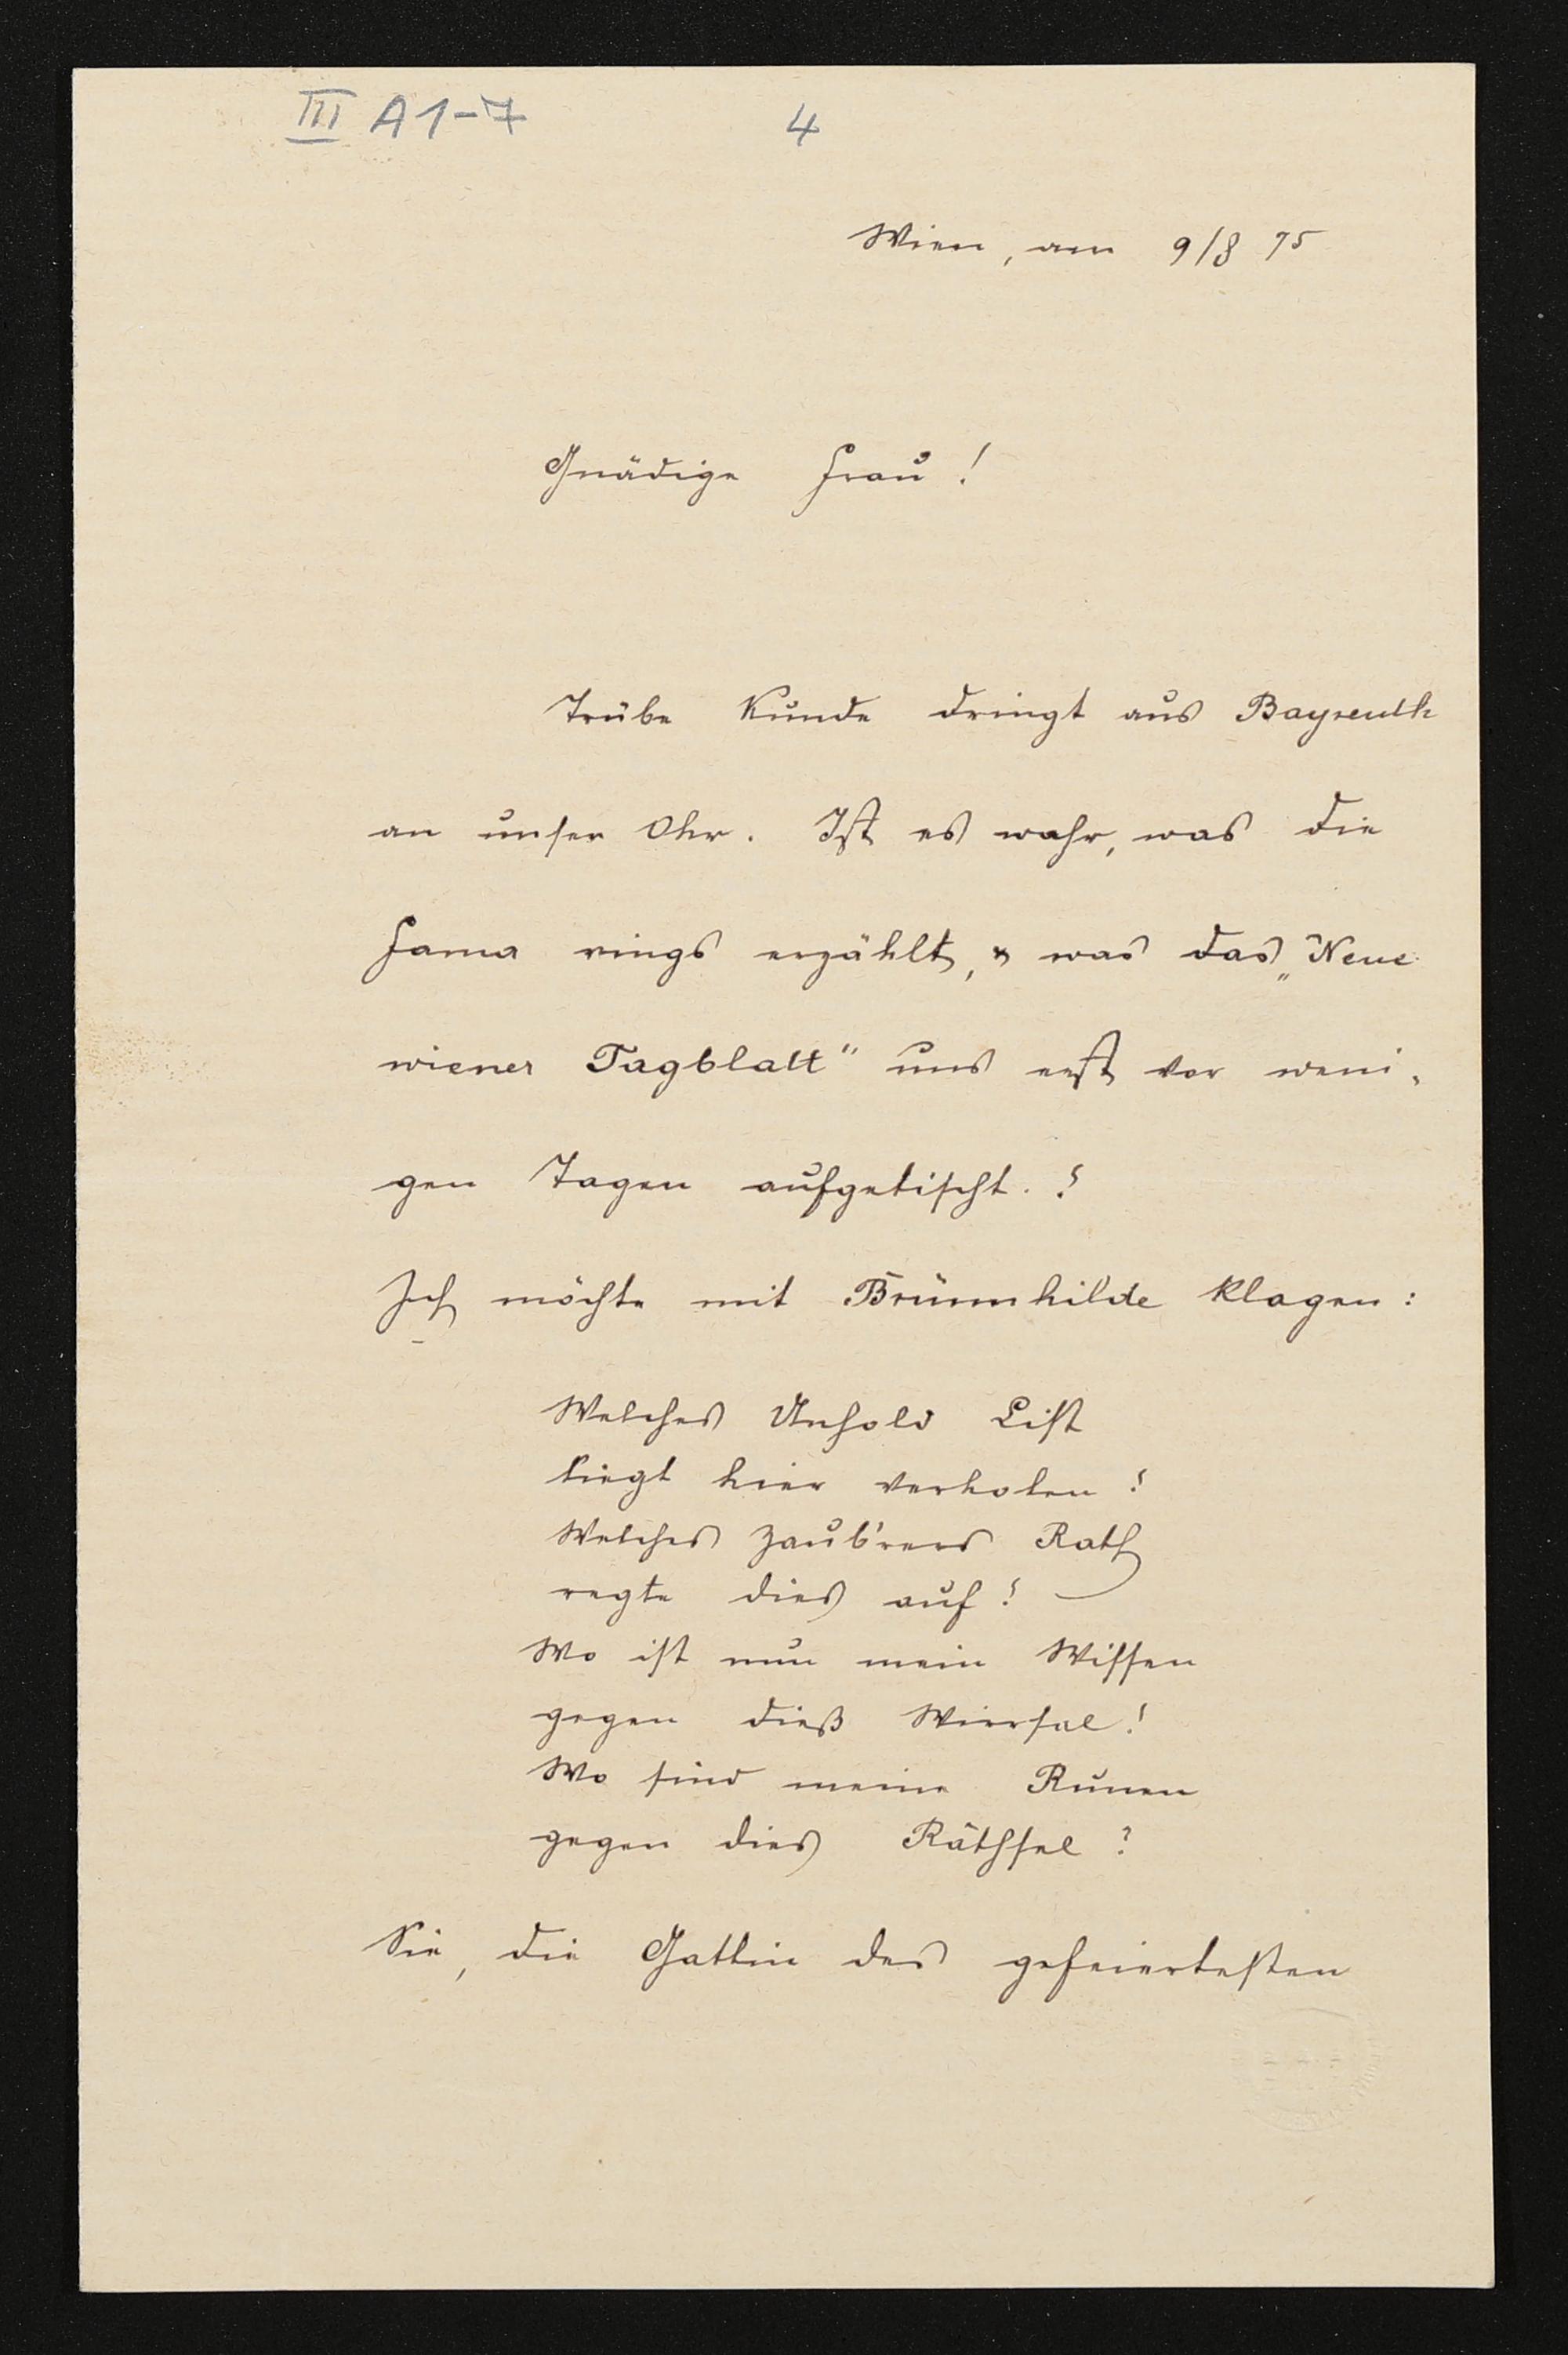 III A 1-7
4
Wien, am 9/8 75
Gnädige Frau!
Trübe Kunde dringt aus Bayreuth
an unser Ohr. Ist es wahr, was die
Fama rings erzählt, & was das „Neue
wiener Tagblatt" uns erst vor weni-
gen Tagen aufgetischt.?
Ich möchte mit Brünnhilde klagen:
Welches Unhold List
liegt hier verholen?
Welches Zaub'rers Rath
regte dies auf?
Wo ist nun mein Wissen
gegen dieß Wirrsal!
Wo sind meine Runen
gegen dies Räthsel?
Sie, die Gattin des gefeiertesten